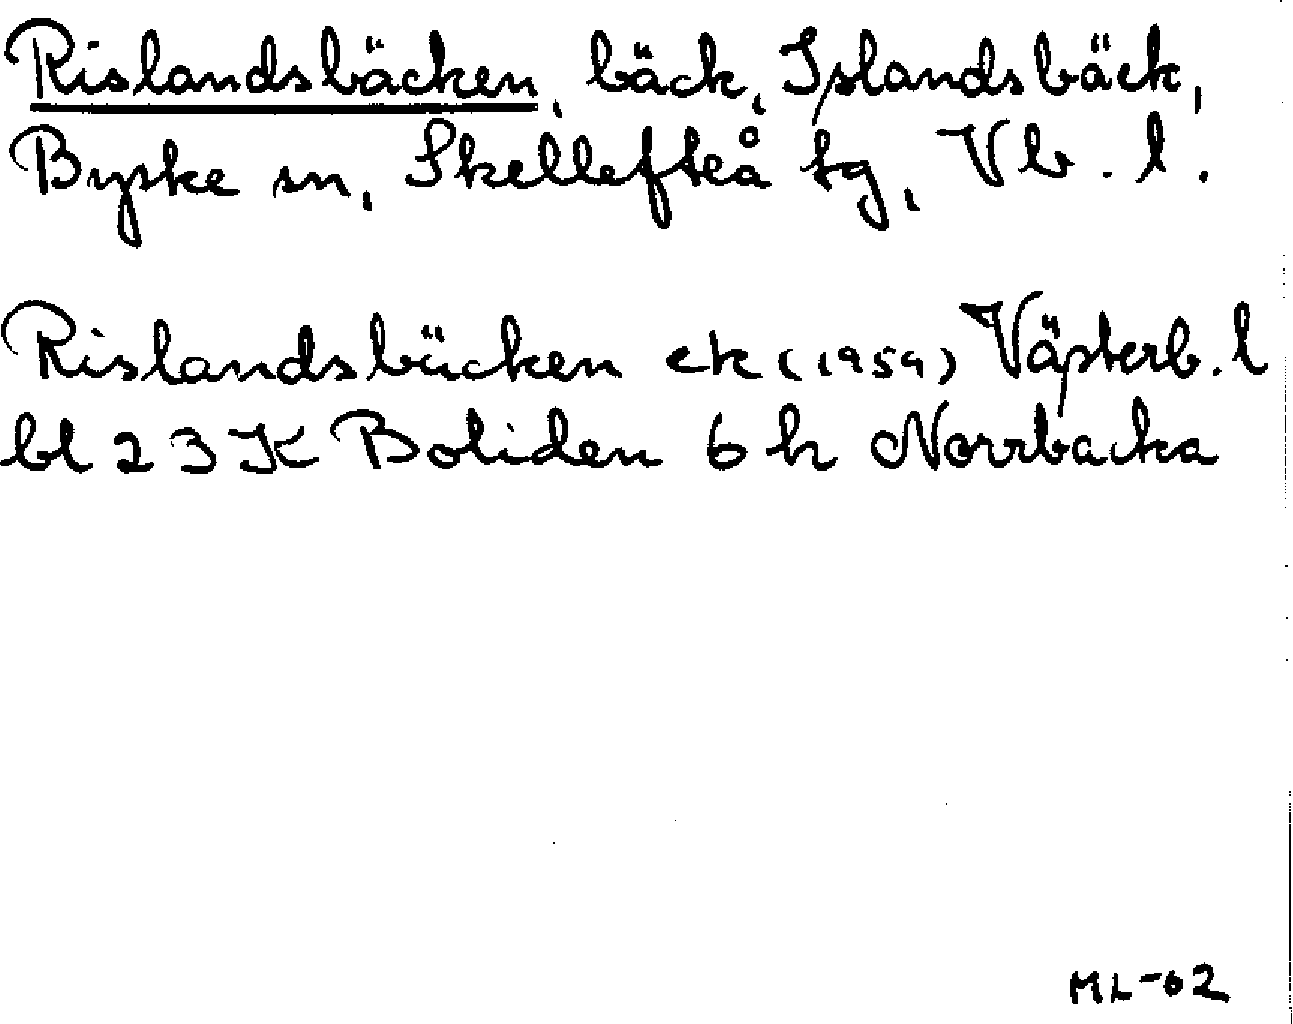 Rislandsbäcken, bäck, Islandsbäck,
Byske sn, Skellefteå tg, Vb. l.
Rislandsbäcken ek (1959) Västerb. l
bl 23 K Boliden 6 h Norrbacka
ML-62